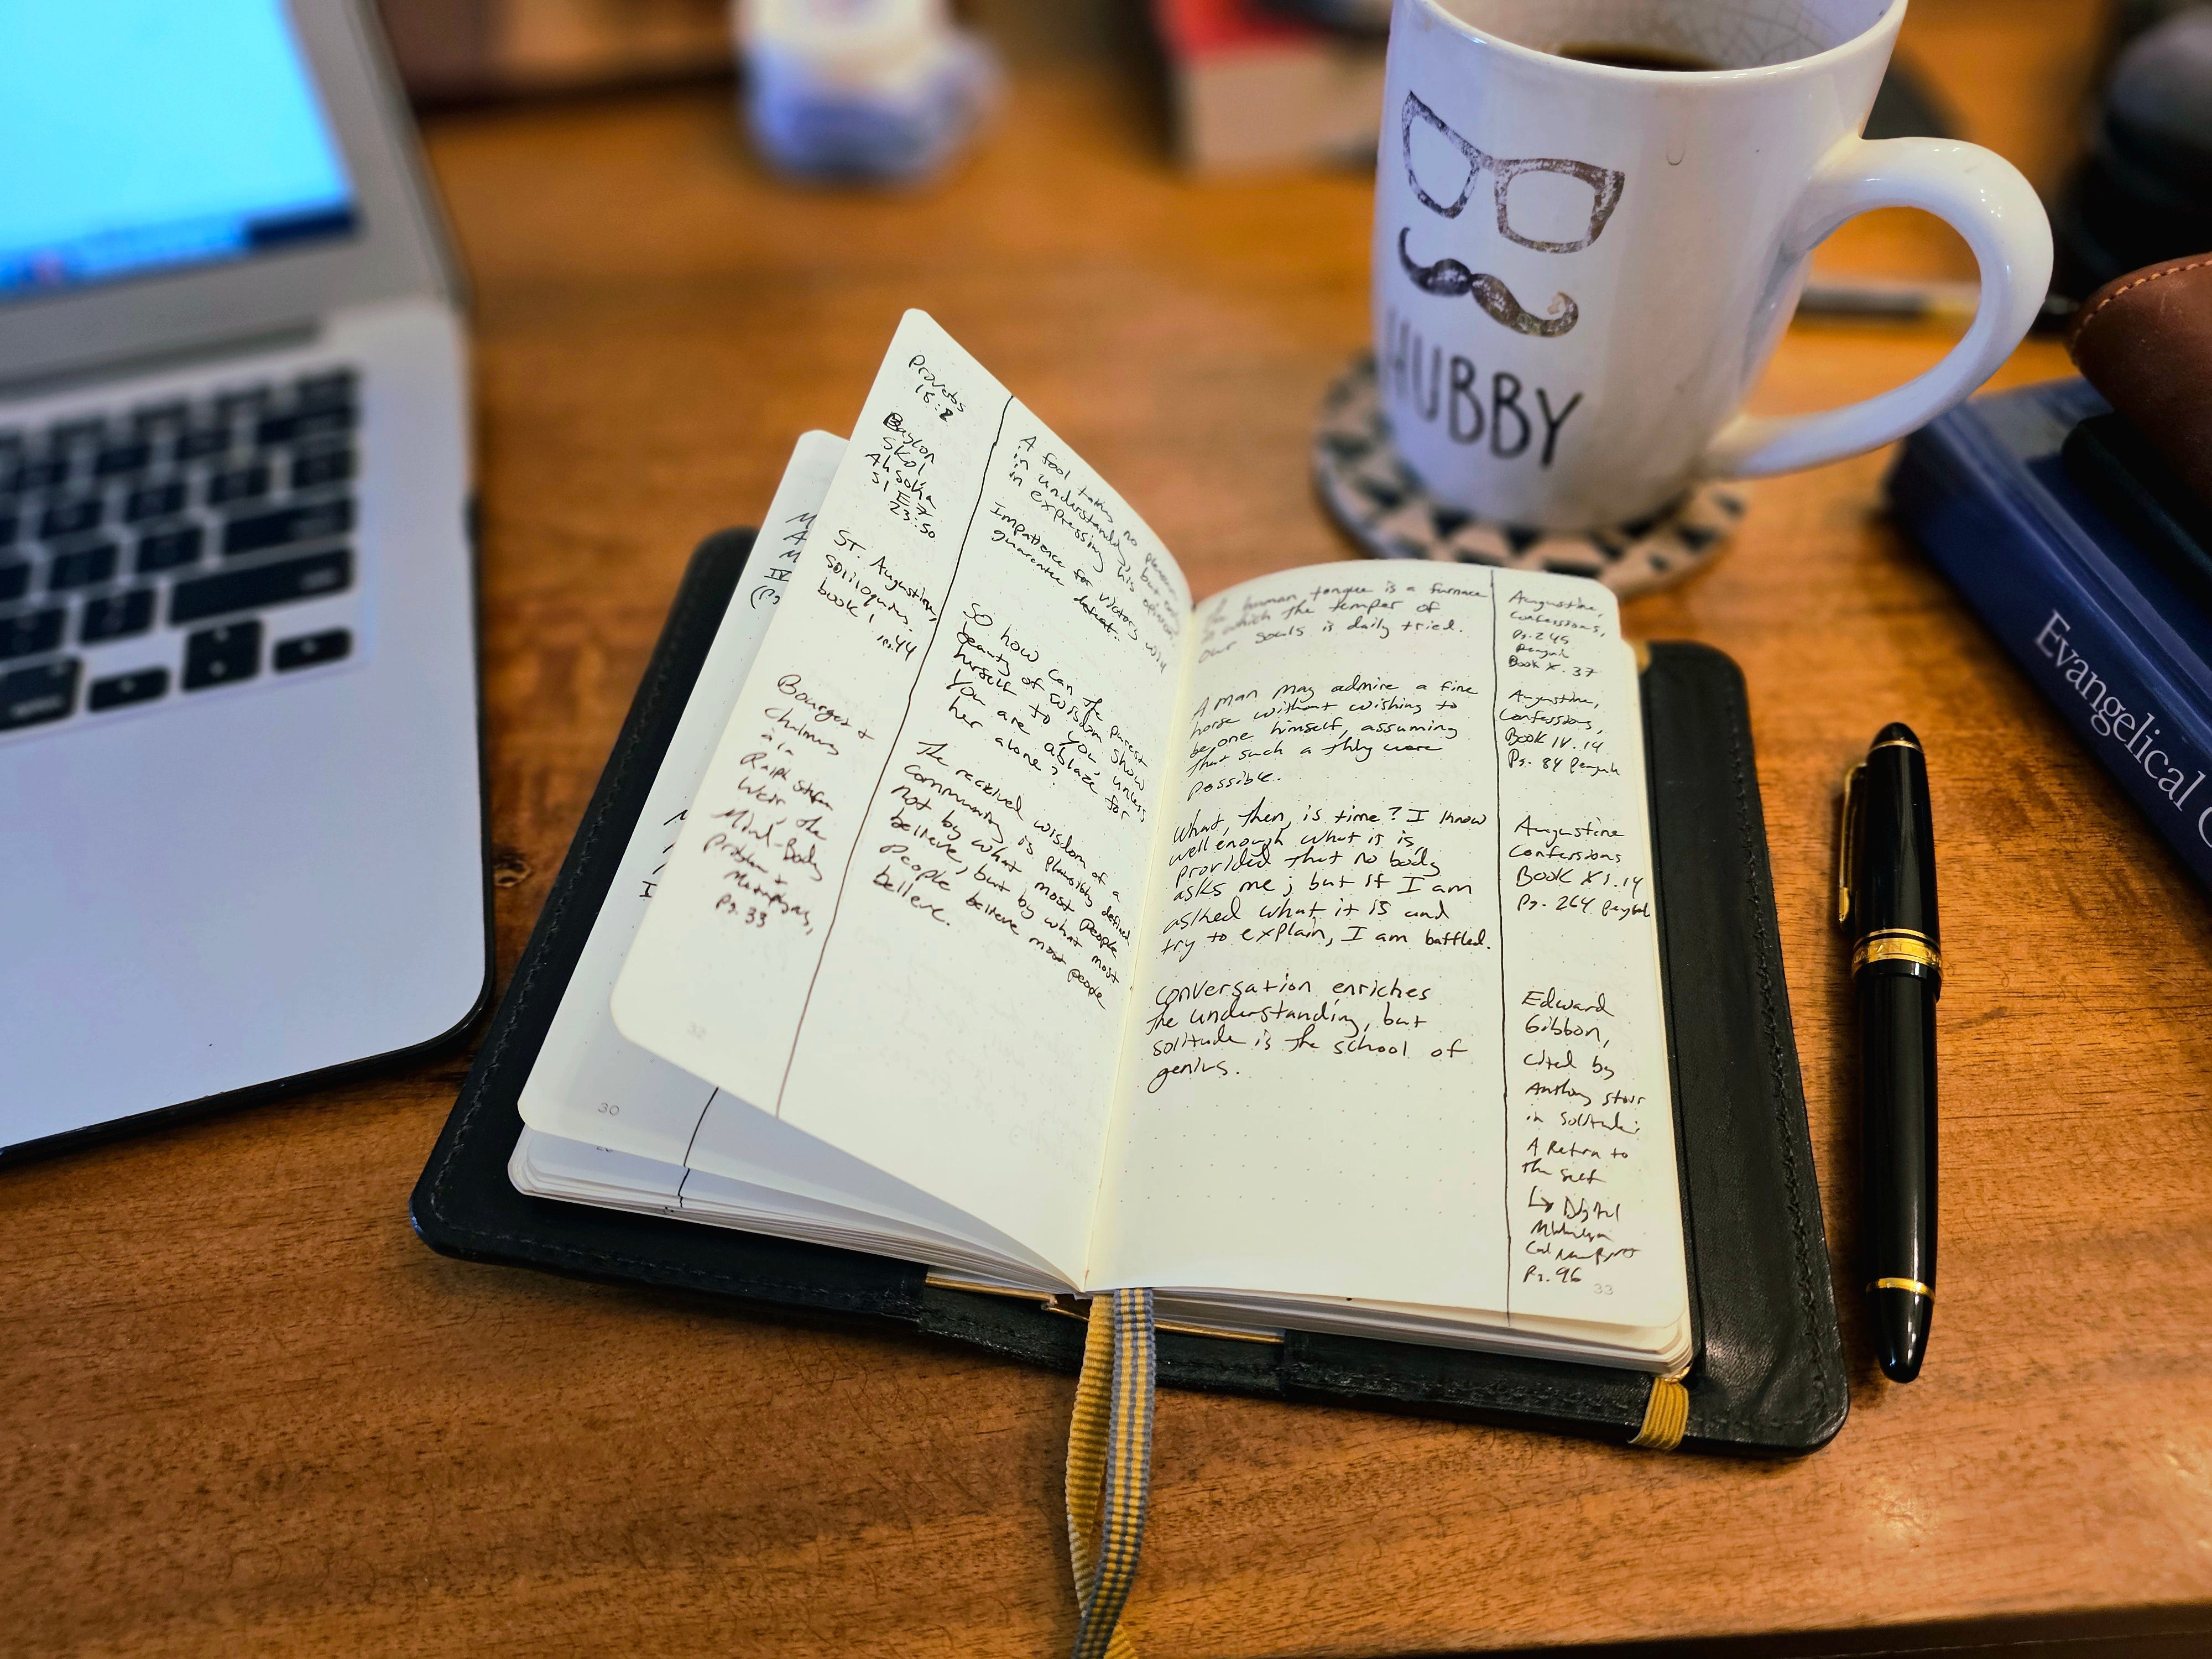 HUBBY
Evangelical
Proverbs
18:2
A fool takes no pleasure
in understanding, but only
in expressing his opinion.
Baylon
Skol
Ahsoka
S1 E7
23:50
Impatience for victory will
guarantee defeat.
ST. Augustine,
soliloquies,
book 1
So how can the purest
beauty of wisdom show
herself to you, unless
you are ablaze for
her alone?
Bourget +
Chalmers
à la
Ralph Stefan
Weir, the
Mind-Body
problem +
Metaphysics,
Pg. 33
The received wisdom of a
community is plausibly defined
not by what most people
believe, but by what most
people believe most people
believe.
30
human tongue is a furnace
in which the temper of
our souls is daily tried.
Augustine,
Confessions,
Pg. 245
Penguin
Book X. 37
A man may admire a fine
horse without wishing to
be one himself, assuming
that such a thing were
possible.
Augustine,
Confessions,
Book IV. 14
Pg. 84 Penguin
What, then, is time? I know
well enough what it is,
provided that no body
asks me; but if I am
asked what it is and
try to explain, I am baffled.
Augustine
Confessions
Book XI. 14
Pg. 264 Penguin
Conversation enriches
the understanding, but
solitude is the school of
genius.
Edward
Gibbon,
cited by
Anthony Storr
in Solitude:
A Return to
the Self
↳ Digital
Minimalism
Cal Newport
Pg. 96
33